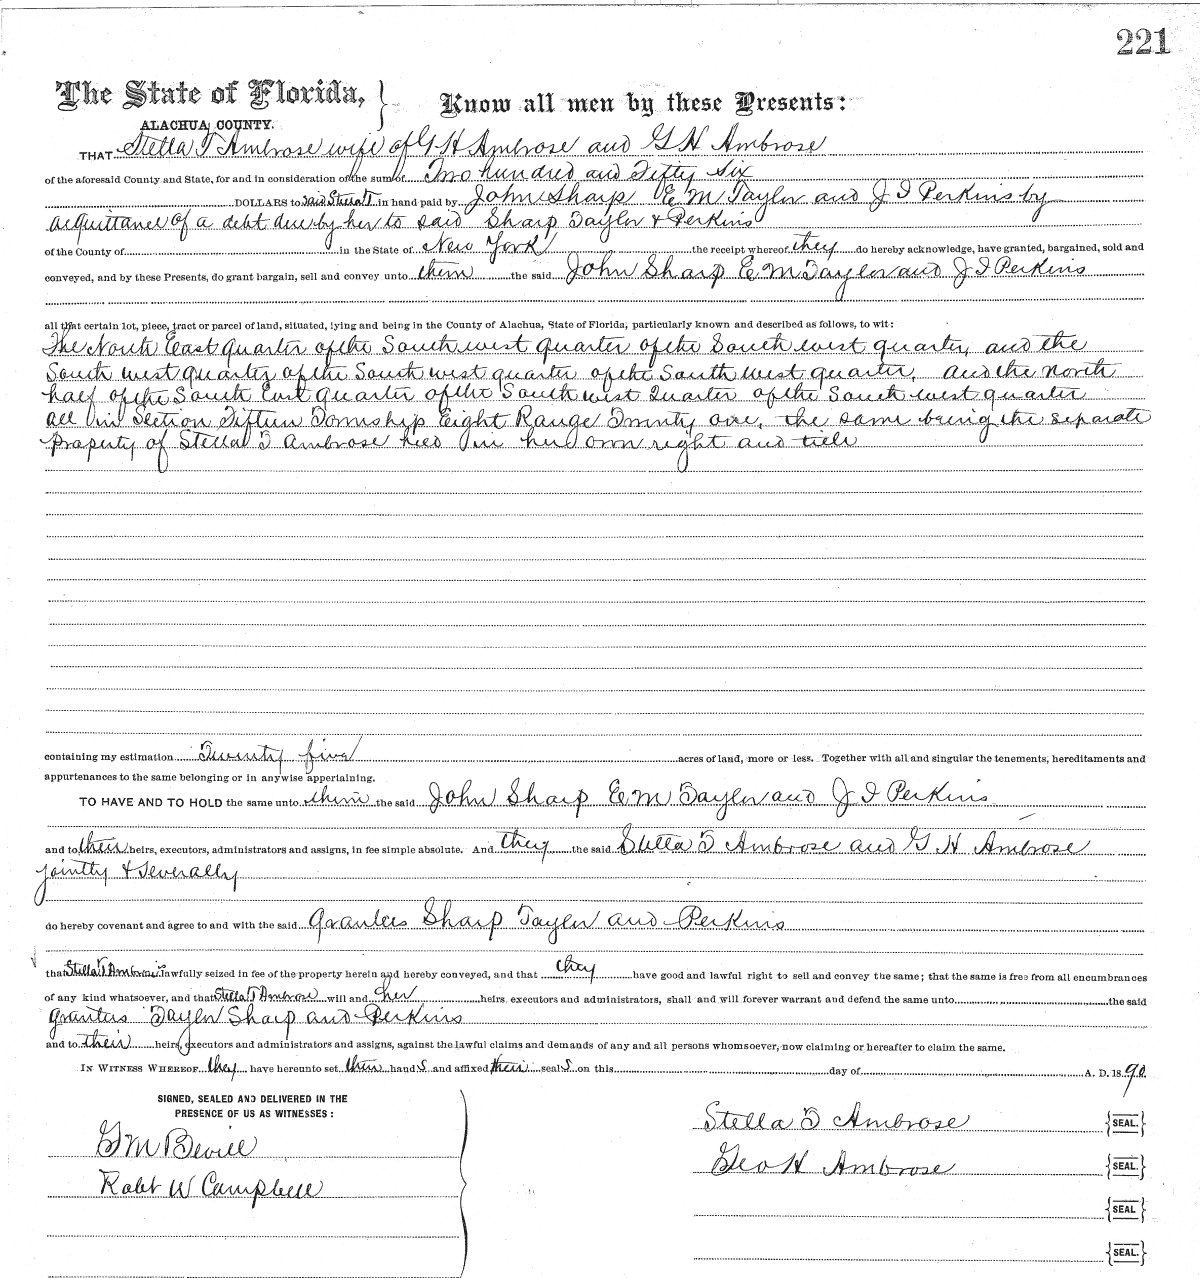 221
The State of Florida, Know all men by these Presents:
ALACHUA COUNTY.
THAT Stella T Ambrose wife of G H Ambrose and G H Ambrose
of the aforesaid County and State, for and in consideration of the sum of Two hundred and Fifty Six
DOLLARS to said Stella T in hand paid by John Sharp E M Taylor and J I Perkins by
acquittance of a debt due by her to said Sharp Taylor & Perkins
of the County of in the State of New York the receipt whereof they do hereby acknowledge, have granted, bargained, sold and
conveyed, and by these Presents, do grant bargain, sell and convey unto them the said John Sharp E M Taylor and J I Perkins
all that certain lot, piece, tract or parcel of land, situated, lying and being in the County of Alachua, State of Florida, particularly known and described as follows, to wit:
The North East quarter of the South west quarter of the South west quarter, and the
South west quarter of the South west quarter of the South west quarter, and the north
half of the South East quarter of the South west Quarter of the South west quarter
all in Section Fifteen Township Eight Range Twenty one, the same being the separate
property of Stella T Ambrose held in her own right and title
containing my estimation Twenty five acres of land, more or less. Together with all and singular the tenements, hereditaments and
appurtenances to the same belonging or in anywise appertaining.
TO HAVE AND TO HOLD the same unto them the said John Sharp E M Taylor and J I Perkins
and to their heirs, executors, administrators and assigns, in fee simple absolute. And they the said Stella T Ambrose and G H Ambrose
jointly & severally
do hereby covenant and agree to and with the said grantees Sharp Taylor and Perkins
that Stella T Ambrose is lawfully seized in fee of the property herein and hereby conveyed, and that they have good and lawful right to sell and convey the same; that the same is free from all encumbrances
of any kind whatsoever, and that Stella T Ambrose will and her heirs, executors and administrators, shall and will forever warrant and defend the same unto the said
grantees Taylor Sharp and Perkins
and to their heirs, executors and administrators and assigns, against the lawful claims and demands of any and all persons whomsoever, now claiming or hereafter to claim the same.
IN WITNESS WHEREOF they have hereunto set their hand s and affixed their seal s on this day of A. D. 1890
SIGNED, SEALED AND DELIVERED IN THE
PRESENCE OF US AS WITNESSES:
Stella T Ambrose {SEAL.}
G M Bevill
Geo H Ambrose {SEAL.}
Robt W Campbell
{SEAL}
{SEAL.}